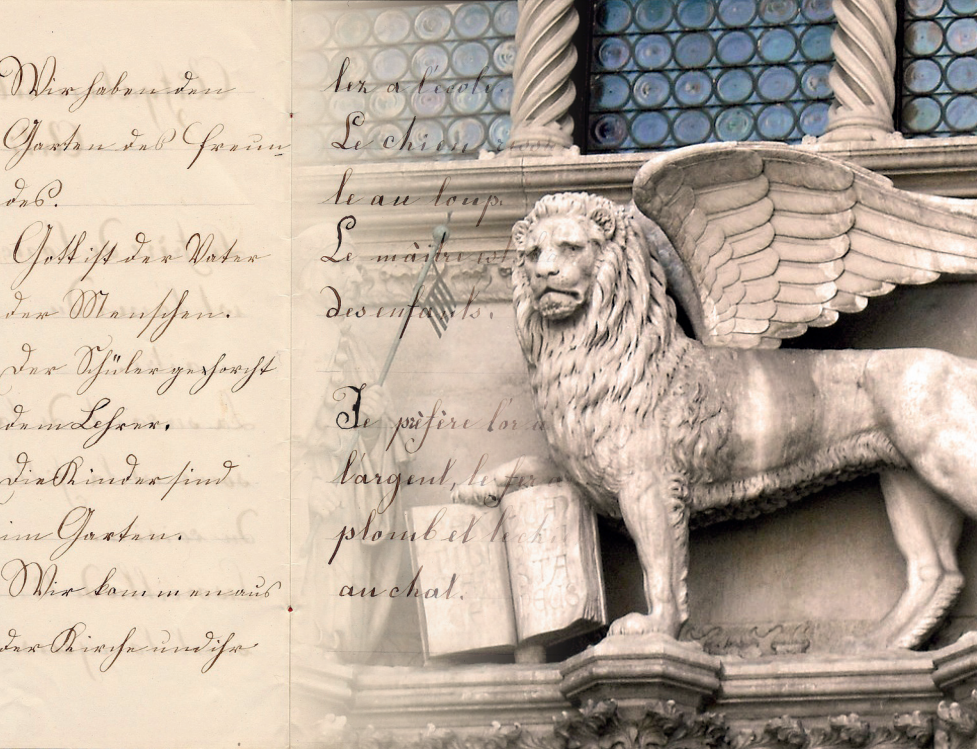 Wir haben den
Garten des Freun
des.
Gott ist der Vater
der Menschen.
Der Schüler gehorcht
dem Lehrer.
Die Kinder sind
im Garten.
Wir kommen aus
der Kirche und ihr
lez a l'école.
Le chien
le au loup.
Le maître est
des enfants.
Je préfère l'or a
l'argent, le fer a
plomb et le
au chat.